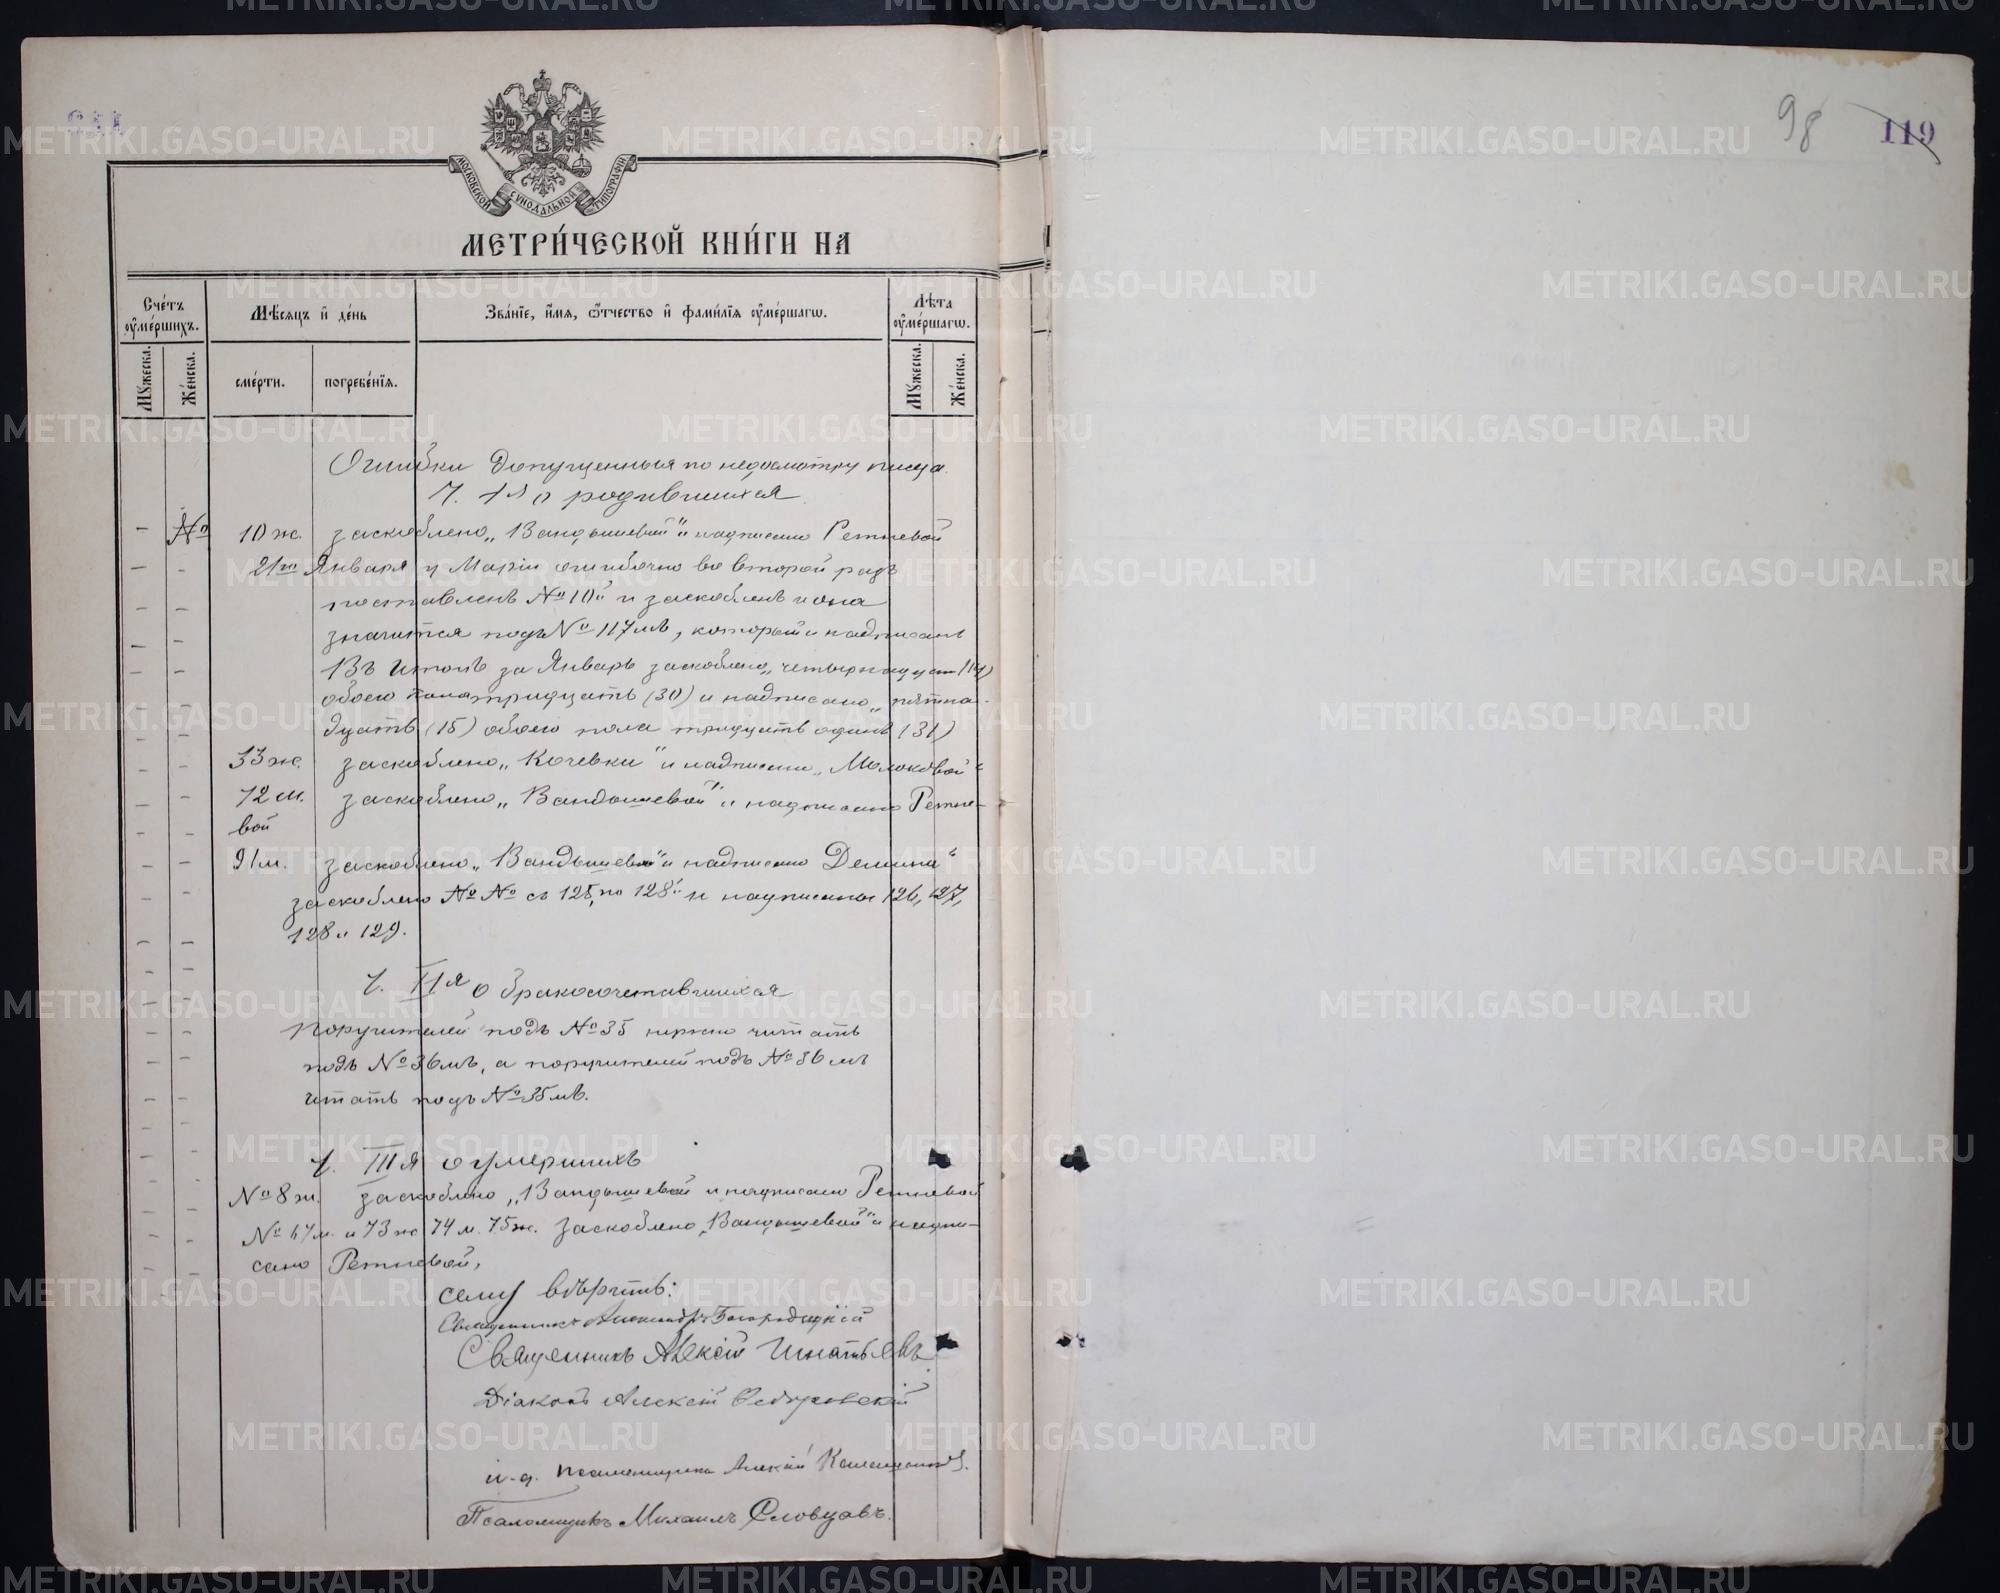 98 119
МОСКОВСКОЙ СѴНОДАЛЬНОЙ ТИПОГРАФІИ
МЕТРИ́ЧЕСКОЙ КНИ́ГИ НА
Сче́тъ ᲂу҆ме́ршихъ.
Мѣ́сяцъ и҆ де́нь
Зва́нїе, и҆́мя, ѻ҆́тчество и҆ фами́лїя ᲂу҆ме́ршагѡ.
Лѣ́та ᲂу҆ме́ршагѡ.
Мꙋ́жеска. Же́нска. сме́рти. погребе́нїя. Мꙋ́жеска. Же́нска.
Ошибки допущенныя по недосмотру писца.
Ч. I я о родившихся
№ 10 ж. заскоблено „Вандышевой" и надписано Ретневой
21го Января у Маріи ошибочно во второй разъ
поставленъ № 10й и заскобленъ и она
значится подъ № 117мъ, который и надписанъ
Въ итогѣ за Январь заскоблено „четырнадцать (14)
обоего пола тридцать (30) и надписано „пятна-
дцать (15) обоего пола тридцать одинъ (31)
33 ж. заскоблено „Кочевки" и надписано „Молоковой"
72 м. заскоблено „Вандышевой" и надписано Ретне-
вой
91 м. заскоблено „Вандышева" и надписано Демина"
заскоблено №№ съ 125 по 128й и надписаны 126, 127,
128 и 129.
Ч. II я о бракосочетавшихся
Поручителей подъ № 35 нужно читать
подъ № 36мъ, а поручителей подъ № 36мъ
читать подъ № 35мъ.
Ч. III я о умершихъ
№ 8 ж. заскоблено „Вандышевой и надписано Ретневой
№ 67 м. и 73 ж 74 м. 75 ж. заскоблено „Вандышевой" и надпи-
сано Ретневой,
сему вѣрить:
Священникъ Александръ Богородицкій
Священникъ Алексій Игнатьевъ
Діаконъ Алексій
и. д. псаломщика Алексій
Псаломщикъ Михаилъ Словцовъ.
METRIKI.GASO-URAL.RU